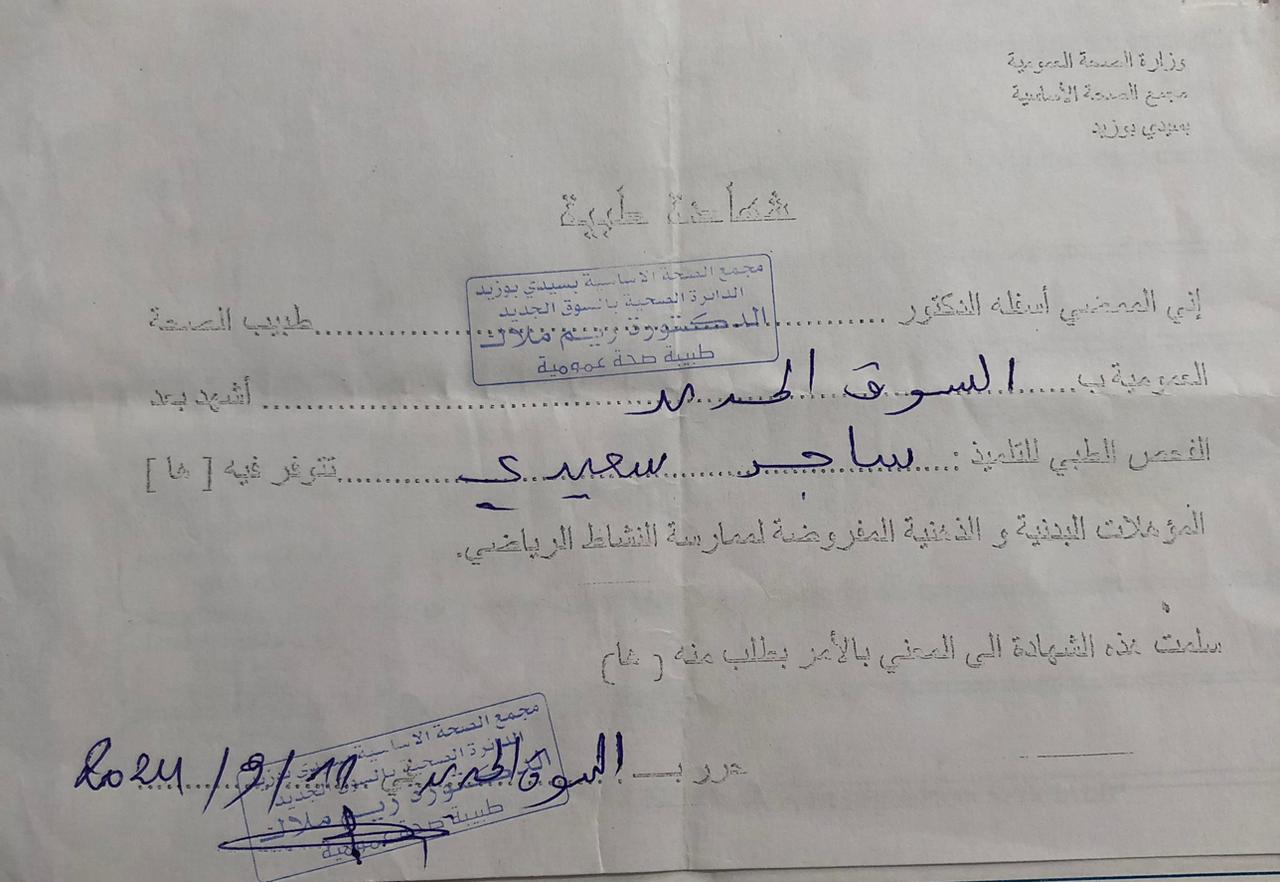 وزارة الصحة العمومية
مجمع الصحة الأساسية
بسيدي بوزيد
شهادة طبية
مجمع الصحة الاساسية بسيدي بوزيد
الدائرة الصحية بالسوق الجديد
الدكتورة ريم ملاك
طبيبة صحة عمومية
إني الممضي أسفله الدكتور .............................. طبيب الصحة
العمومية ب...... السوق الجديد .............................. أشهد بعد
الفحص الطبي للتلميذ : ساجر سعيدي .............. تتوفر فيه [ ها ]
المؤهلات البدنية و الذهنية المفروضة لممارسة النشاط الرياضي.
سلمت هذه الشهادة الى المعني بالأمر بطلب منه ( ها)
حرر بـ السوق الجديد في 11/9/2024
مجمع الصحة الاساسية بسيدي بوزيد
الدائرة الصحية بالسوق الجديد
الدكتورة ريم ملاك
طبيبة صحة عمومية